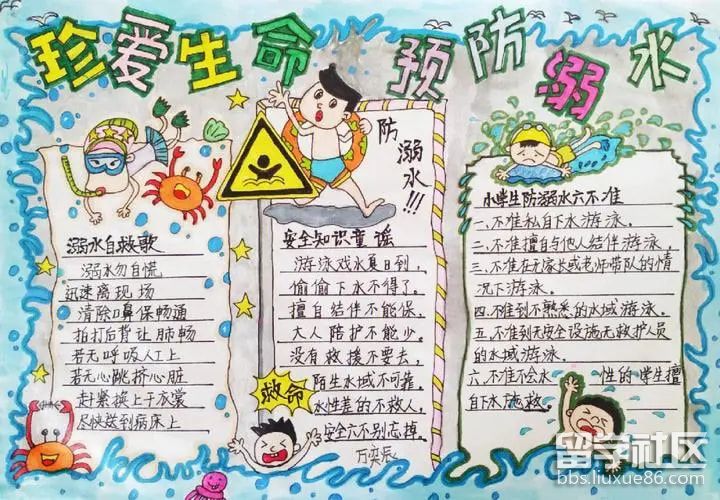 珍爱生命 预防溺水
溺水自救歌
溺水勿自慌
迅速离现场
清除口鼻保畅通
拍打后背让肺畅
若无呼吸人工上
若无心跳挤心脏
赶紧换上干衣裳
尽快送到病床上
防溺水!!!
安全知识童谣
游泳戏水夏日到,
偷偷下水不得了。
擅自结伴不能保,
大人陪护不能少。
没有救援不要去,
陌生水域不可靠。
水性差的不救人,
安全六不别忘掉。
救命
万奕辰
小学生防溺水六不准
一、不准私自下水游泳。
二、不准擅自与他人结伴游泳。
三、不准在无家长或老师带队的情
况下游泳。
四、不准到不熟悉的水域游泳。
五、不准到无安全设施无救护人员
的水域游泳。
六、不准不会水
性的学生擅
自下水施救。
留学社区
bbs.liuxue86.com